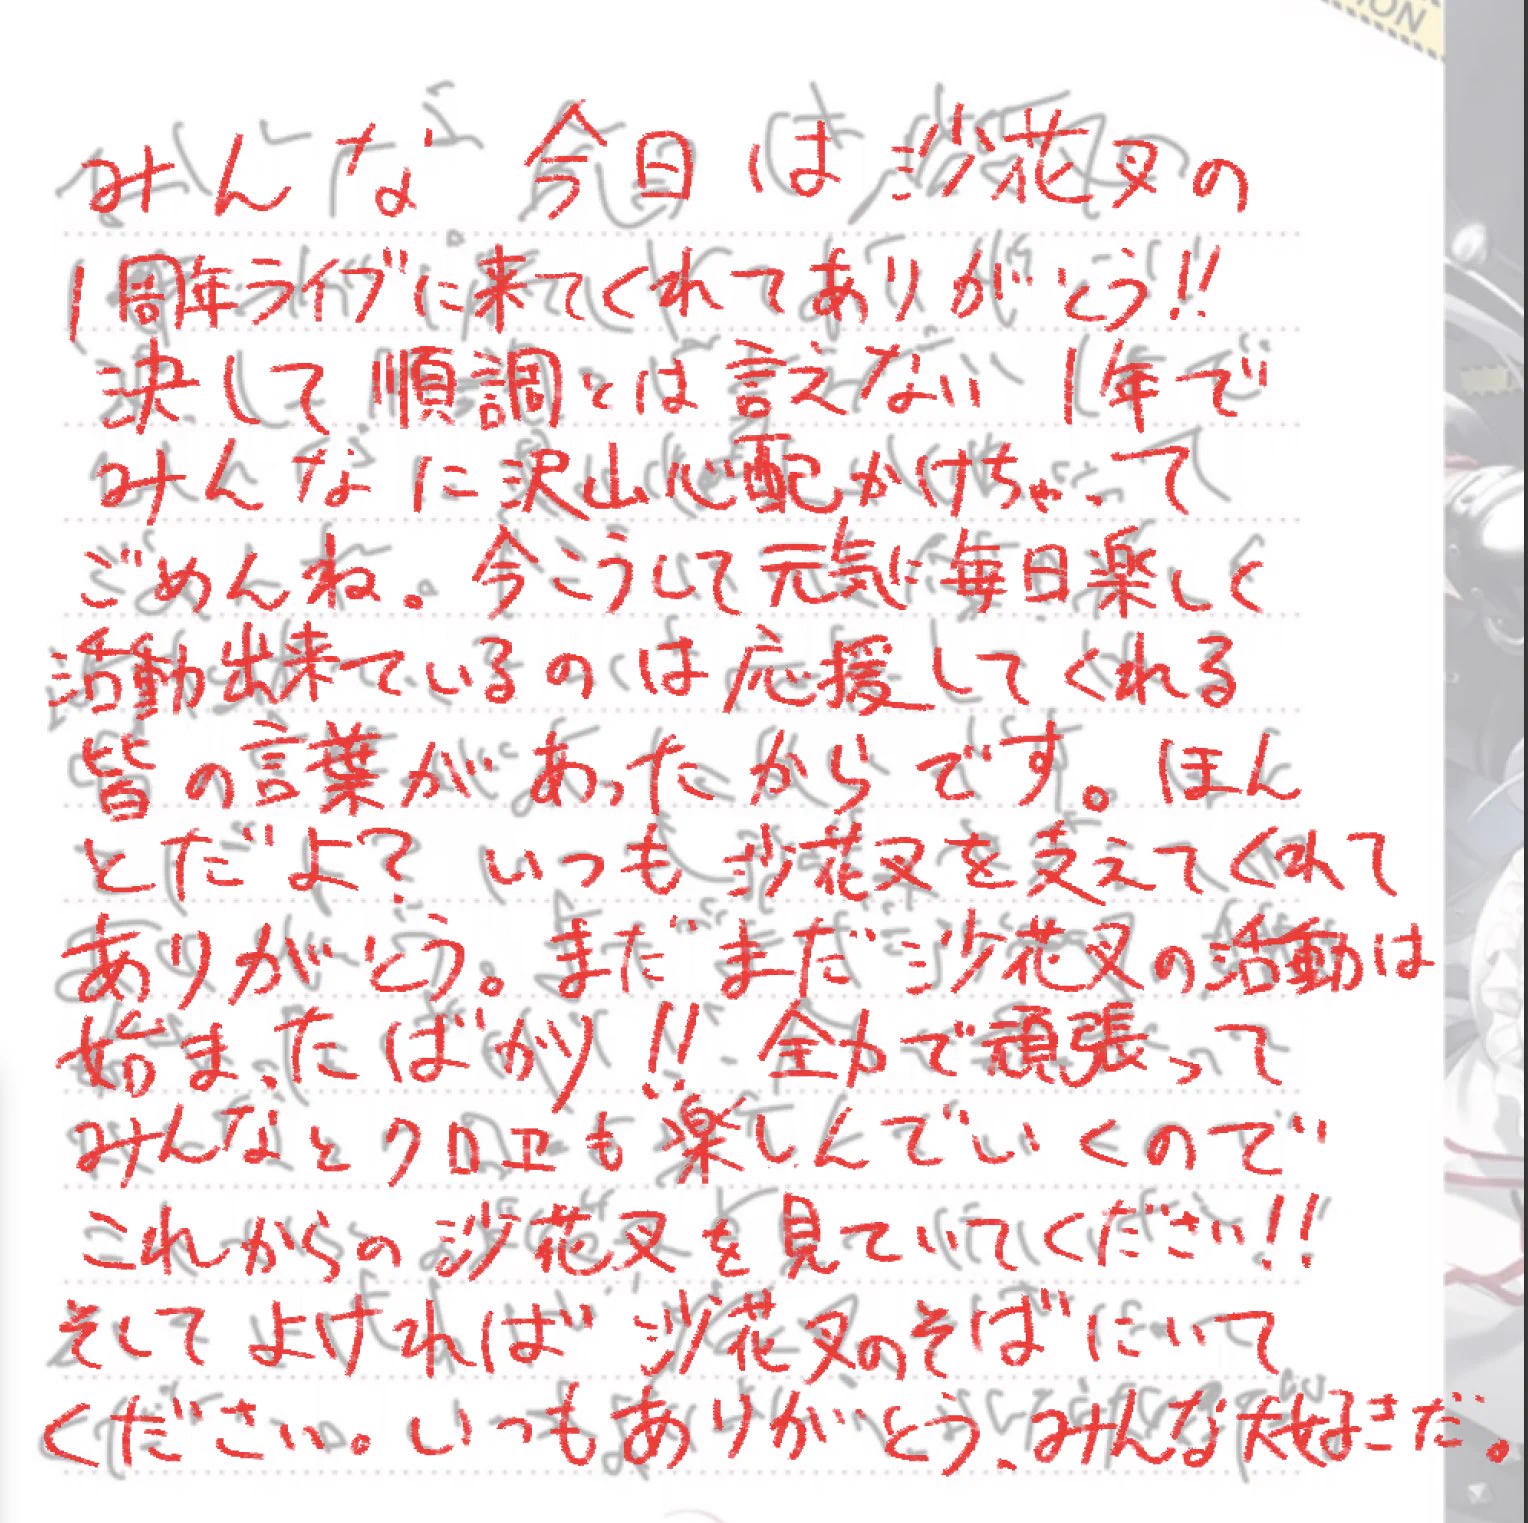 ION
みんな 今日は沙花叉の
1周年ライブに来てくれてありがとう!!
決して順調とは言えない 1年で
みんなに沢山心配かけちゃって
ごめんね。今こうして元気に毎日楽しく
活動出来ているのは応援してくれる
皆の言葉があったからです。ほん
とだよ? いつも沙花叉を支えてくれて
ありがとう。まだまだ沙花叉の活動は
始まったばかり!! 全力で頑張って
みんなとクロヱも楽しんでいくので
これからの沙花叉を見ていてください!!
そして よければ 沙花叉のそばにいて
ください。いつもありがとう、みんな大好きだ。